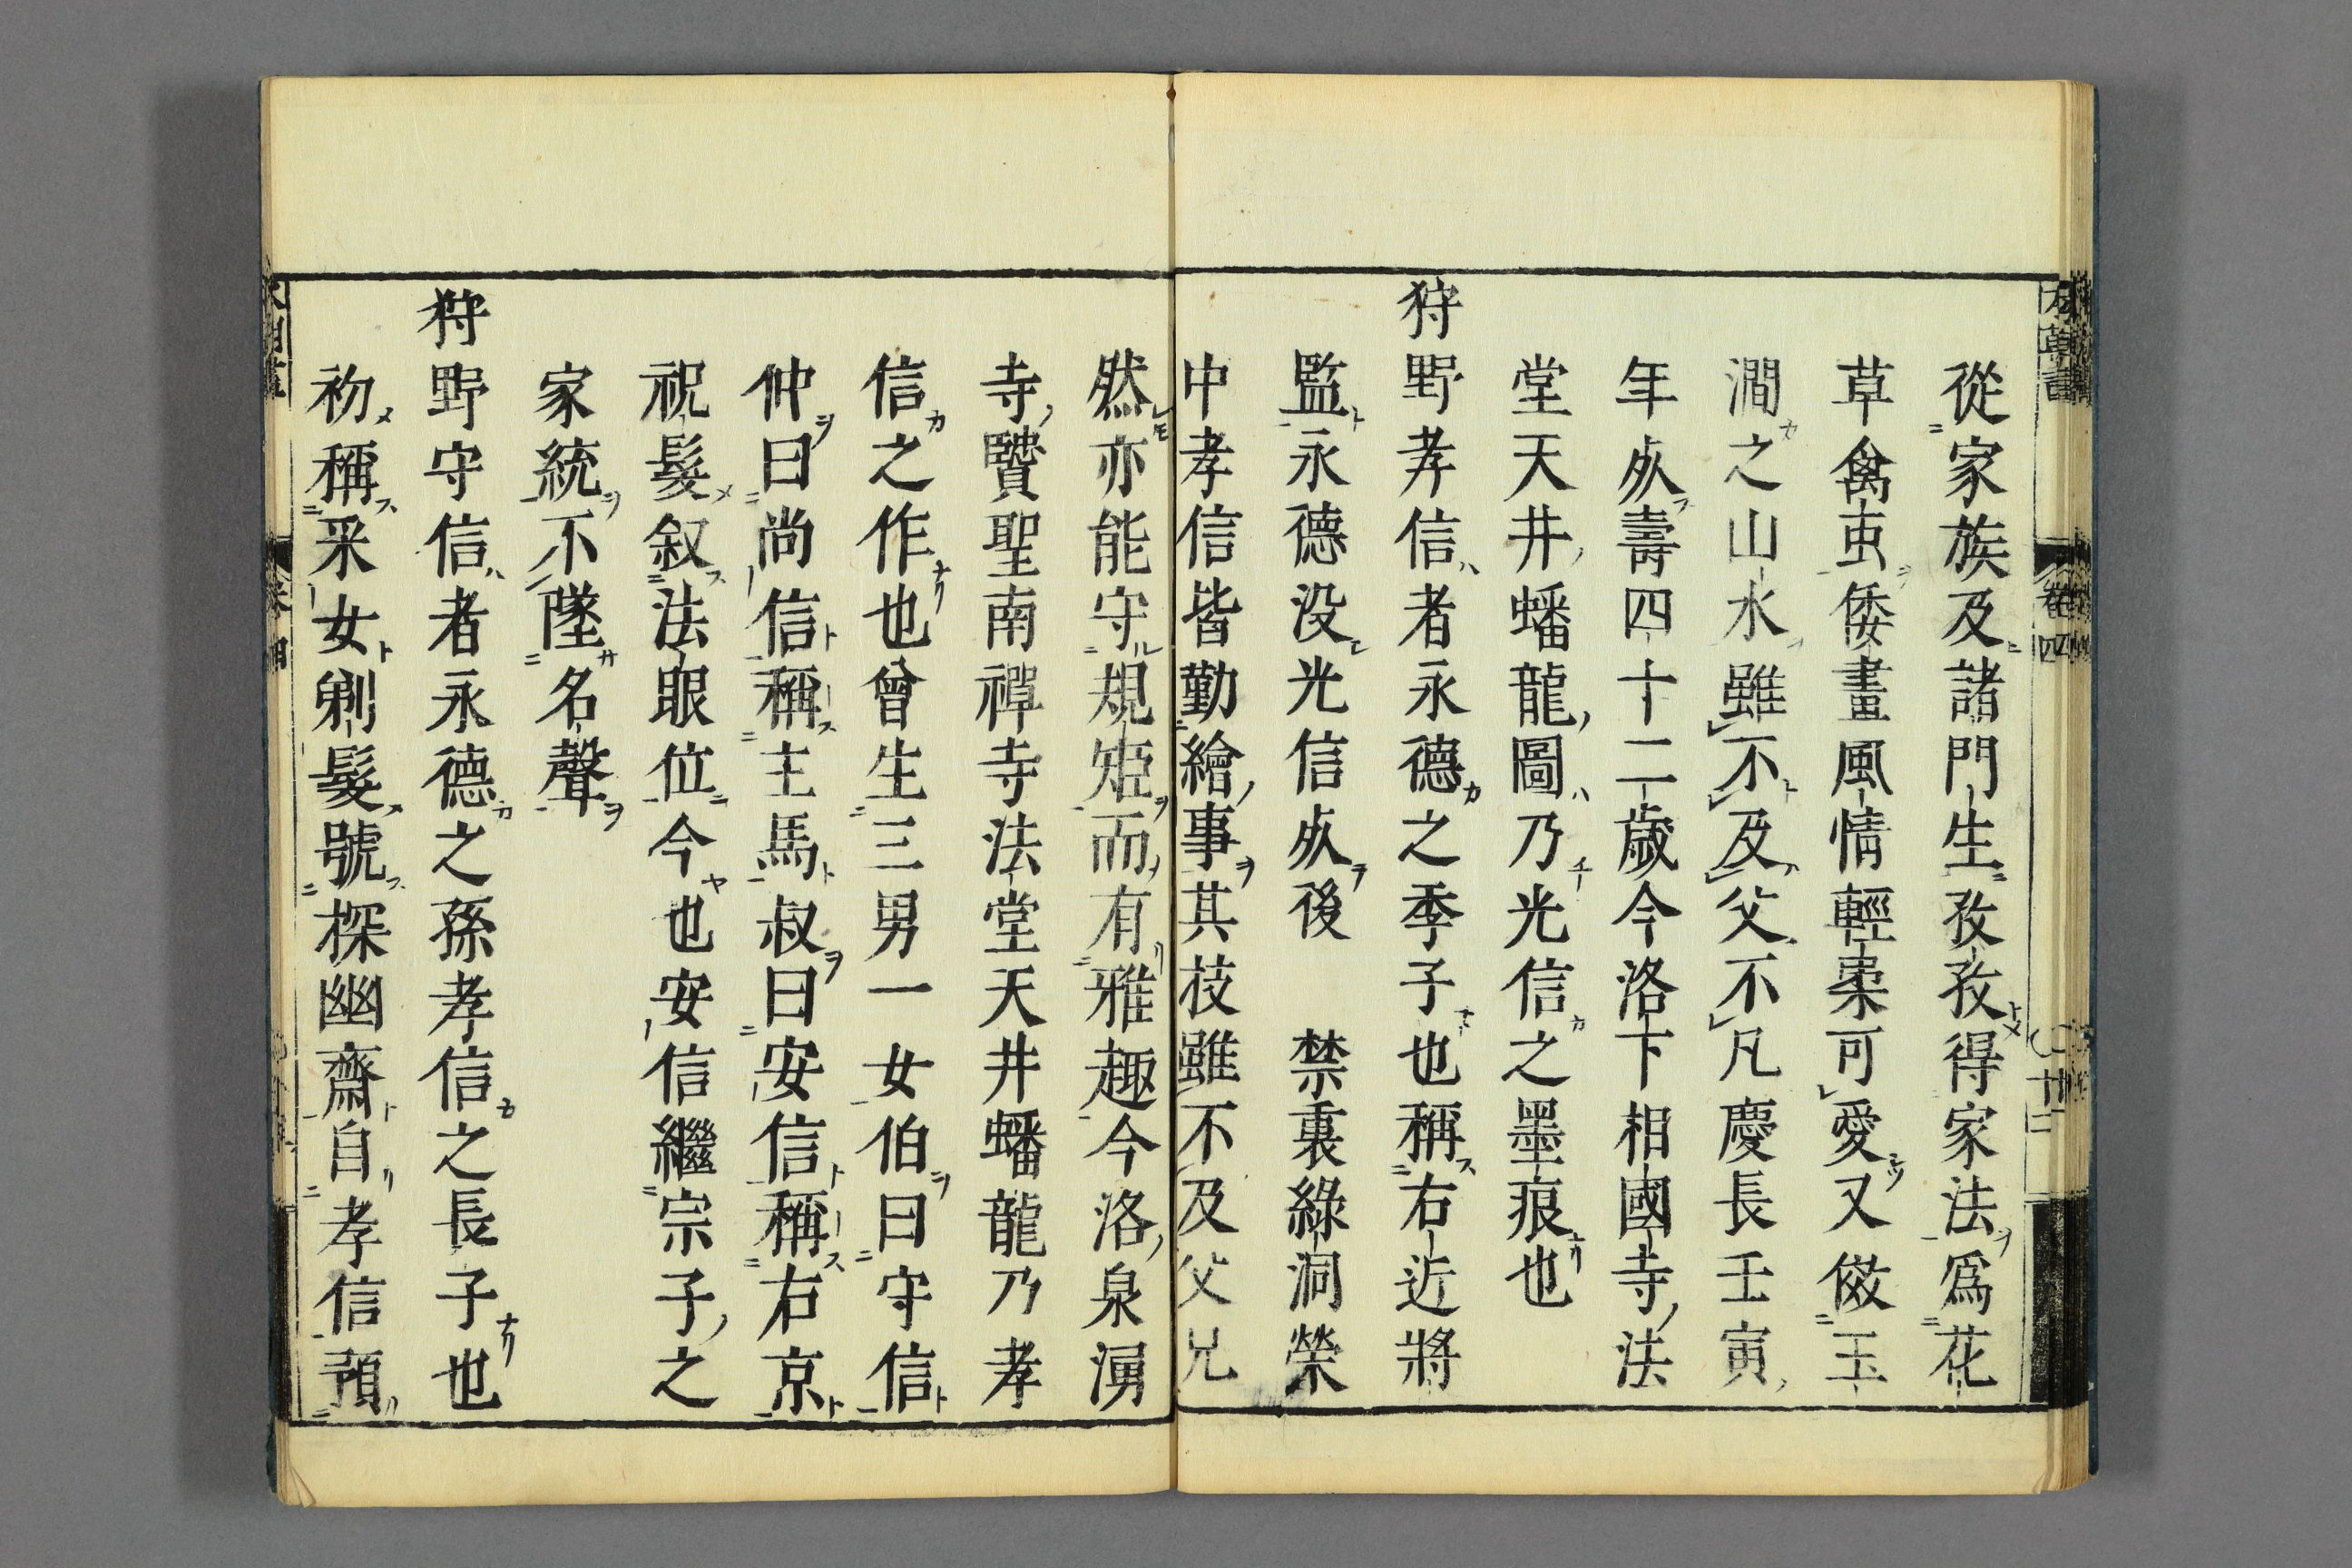 從家族及諸門生孜孜得家法爲花
草禽䖝倭畫風情輕柔可愛又倣玉
澗之山水雖不及父不凡慶長壬寅
年𭀰壽四十二歲今洛下相國寺法
堂天井蟠龍圖乃光信之墨痕也
狩野孝信者永德之季子也稱右近將
監永德没光信𭀰後 禁裏綠洞榮
中孝信皆勤繪事其技雖不及父兄
然亦能守規矩而有雅趣今洛泉涌
寺贒聖南禪寺法堂天井蟠龍乃孝
信之作也曾生三男一女伯曰守信
仲曰尚信稱主馬叔曰安信稱右京
祝髮叙法眼位今也安信繼宗子之
家統不墜名聲
狩野守信者永德之孫孝信之長子也
初稱采女剃髮號探幽齋自孝信預